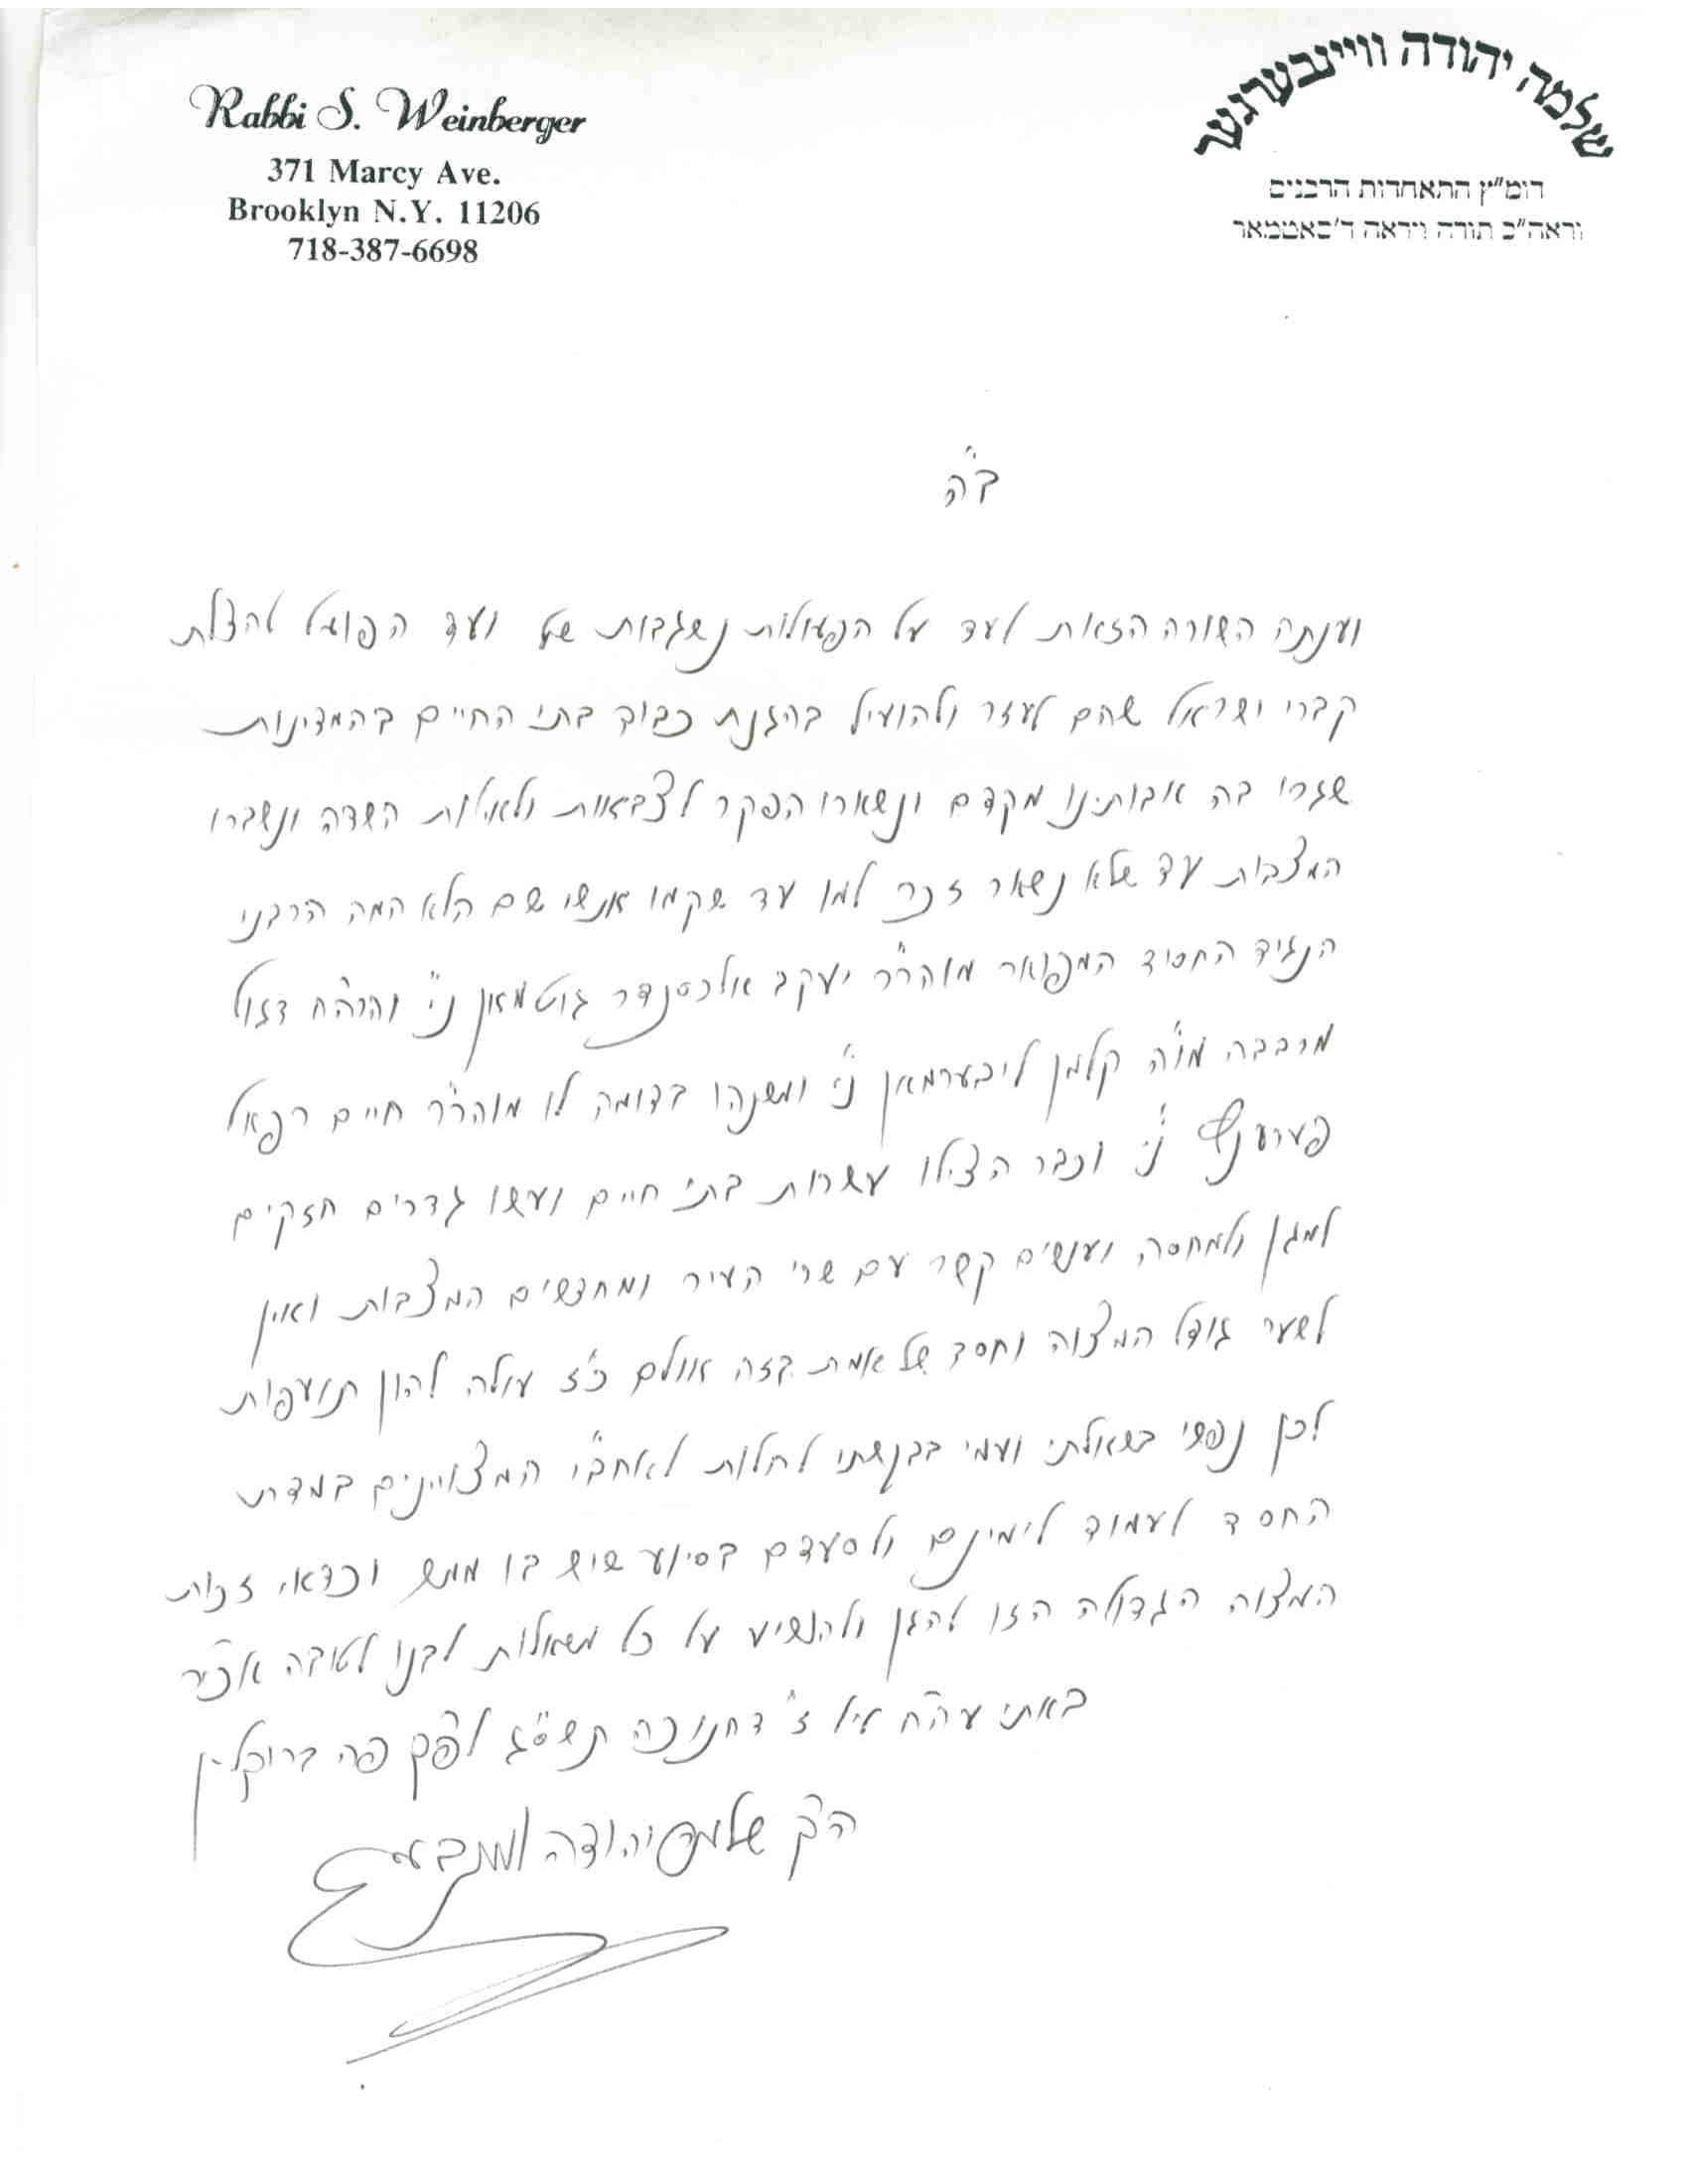 Rabbi S. Weinberger
371 Marcy Ave.
Brooklyn N.Y. 11206
718-387-6698
שלמה יהודה וויינבערגער
דומ"ץ התאחדות הרבנים
וראה"כ תורה ויראה ד'סאטמאר
ב"ה
וענתה השורה הזאת לעד על הפעולות נשגבות של ועד הפועל להצלת
קברי ישראל שהם לעזר ולהועיל בהגנת כבוד בתי החיים בהמדינות
שגרו בה אבותינו מקדם ונשארו הפקר לצבאות ולאילות השדה ונשברו
המצבות עד שלא נשאר זכר למו עד שקמו אנשי שם הלא המה הרבני
הנגיד החסיד המפואר מוהר"ר יעקב אלכסנדר גוטמאן ני' והרה"ח דגול
מרבבה מו"ה קלמן ליבערמאן ני' ומשנהו בדומה לו מוהר"ר חיים רפאל
ני' וכבר הצילו עשרות בתי חיים ועשו גדרים חזקים
למגן ולמחסה ועושים קשר עם שרי העיר ומחדשים המצבות ואין
לשער גודל המצוה וחסד של אמת בזה אולם כ"ז עולה להון תועפות
לכן נפשי בשאלתי ועמי בבקשתי לחלות לאחב"י המצויינים במדת
החסד לעמוד לימינם ולסעדם בסיוע שיש בו ממש וכדאי זכות
המצוה הגדולה הזו להגן ולהושיע על כל משאלות לבנו לטובה אכי"ר
באתי עה"ח ליל ז' דחנוכה תשס"ג לפ"ק פה ברוקלין
הק' שלמה יהודה וויינבערגער